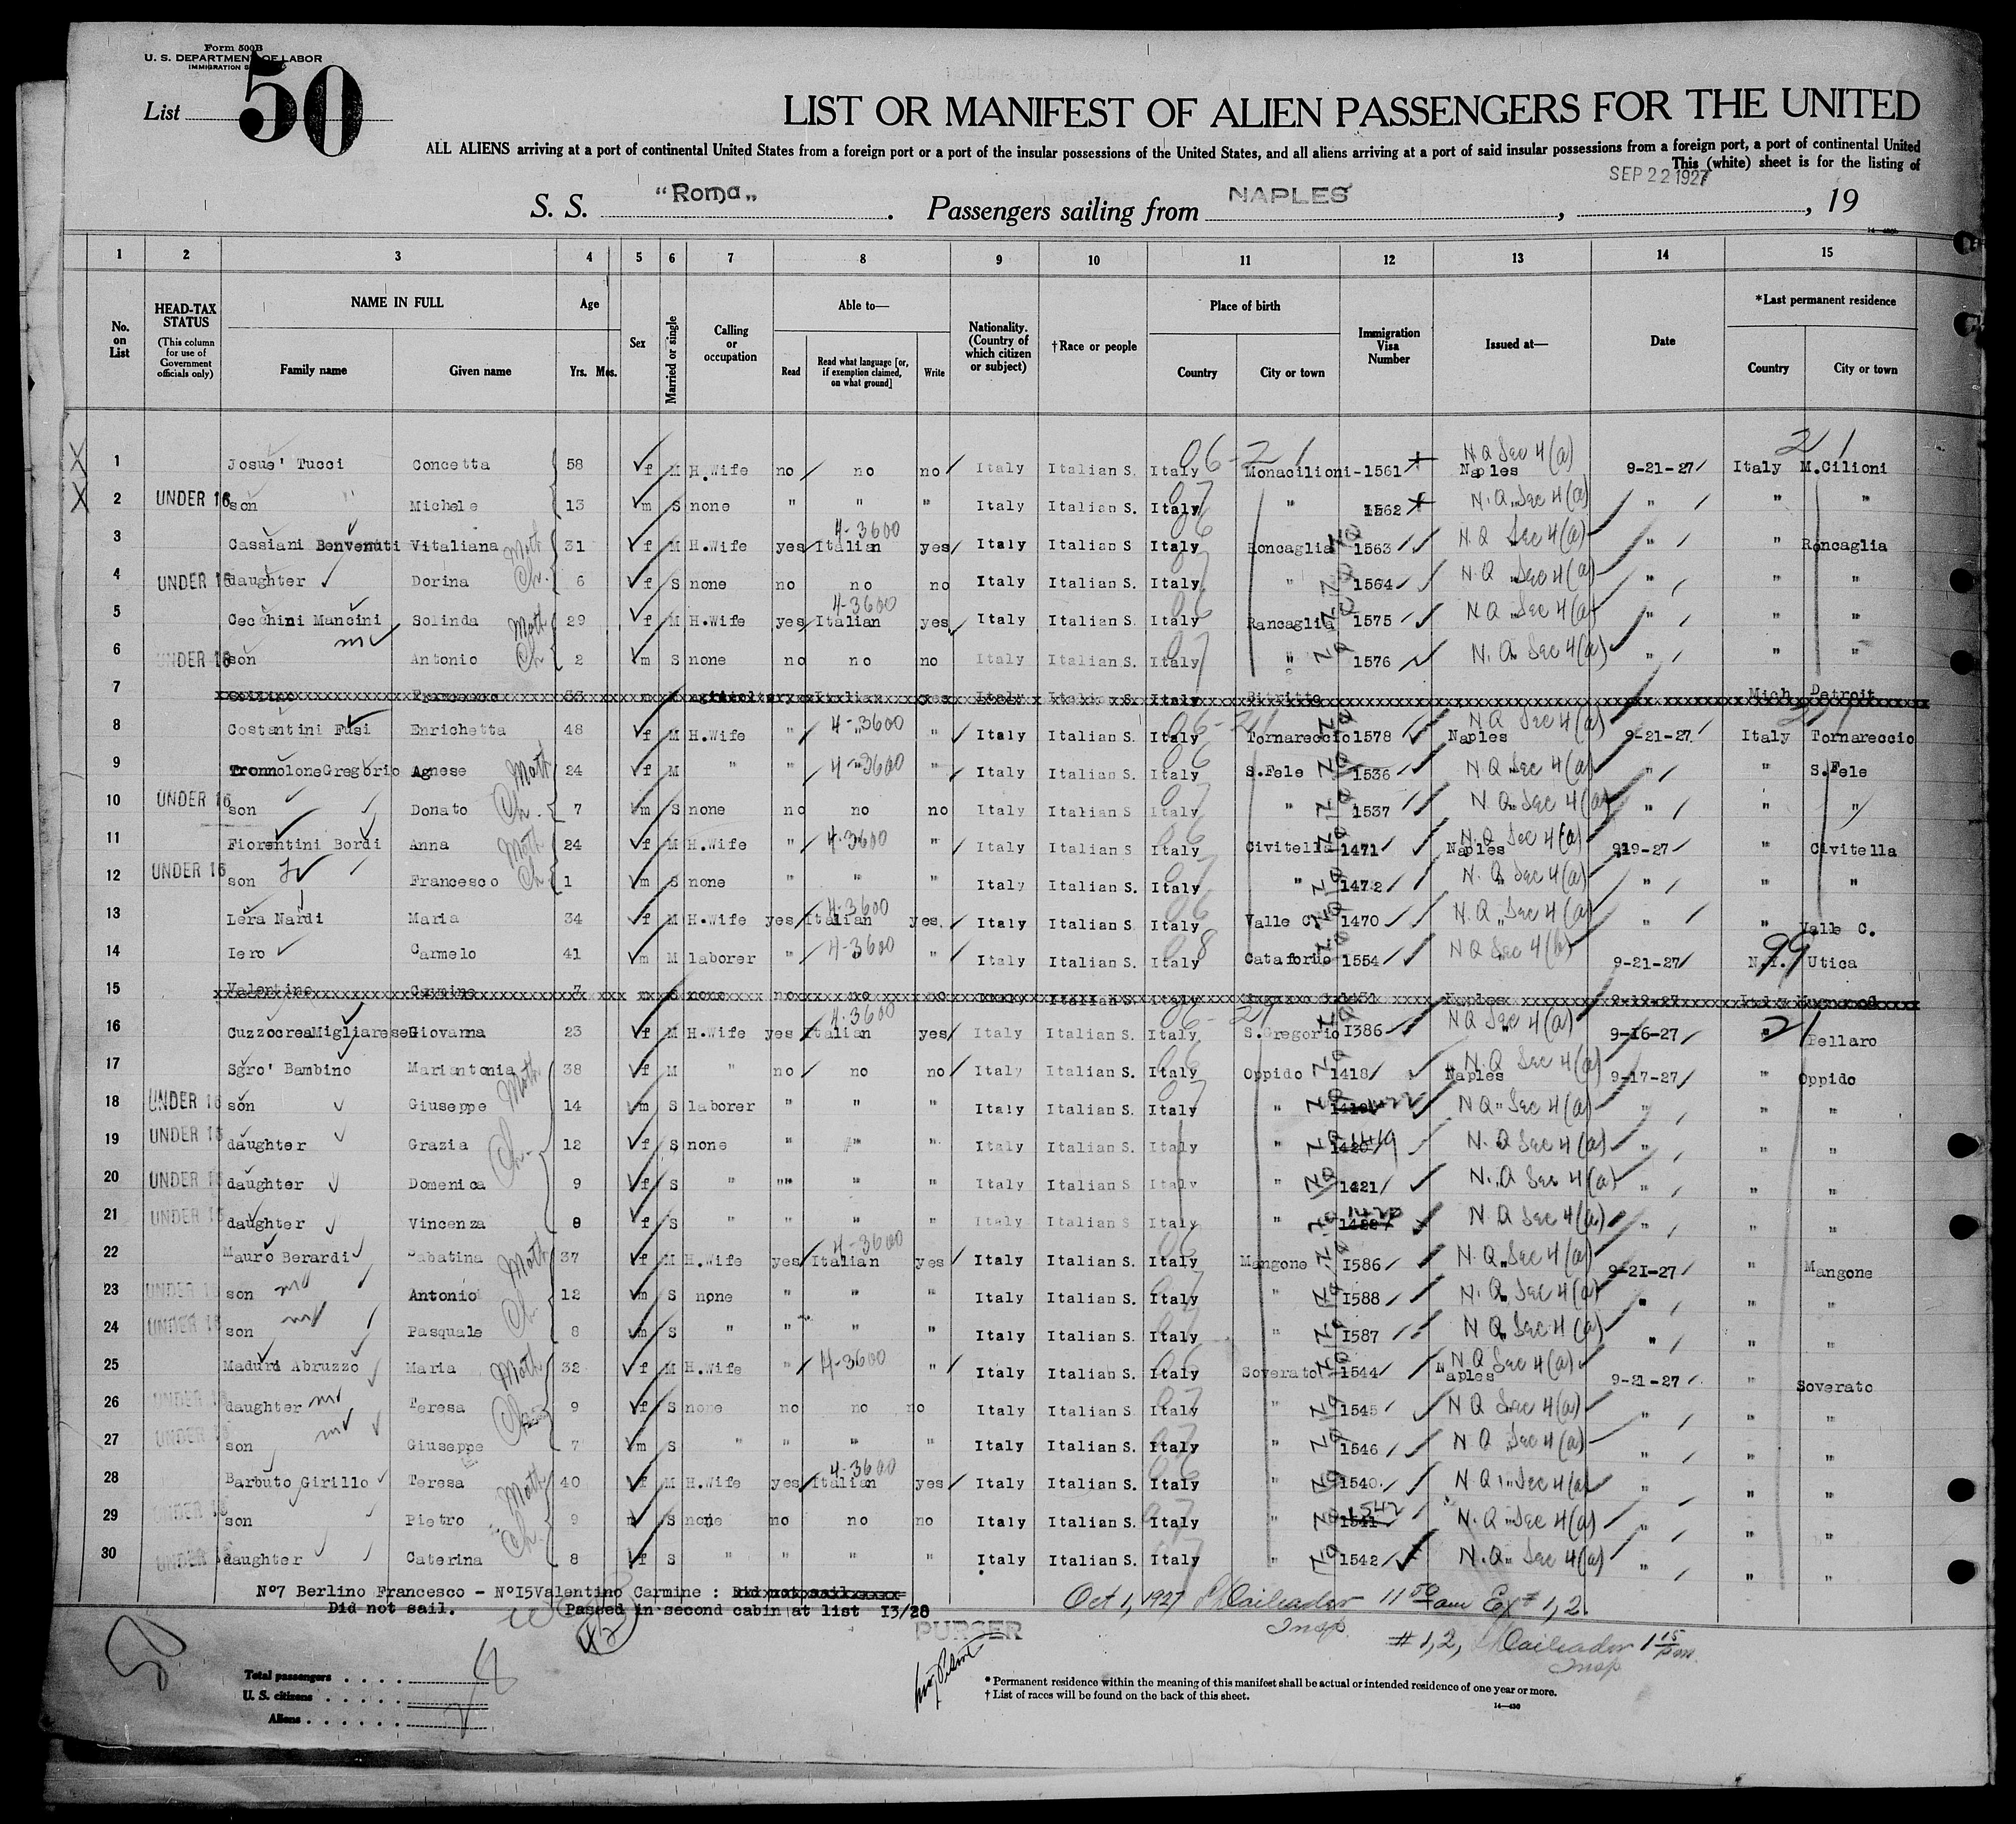 Form 500B
U. S. DEPARTMENT OF LABOR
IMMIGRATION
List 50
LIST OR MANIFEST OF ALIEN PASSENGERS FOR THE UNITED
ALL ALIENS arriving at a port of continental United States from a foreign port or a port of the insular possessions of the United States, and all aliens arriving at a port of said insular possessions from a foreign port, a port of continental United
This (white) sheet is for the listing of
SEP 22 1927
S. S. "Roma" . Passengers sailing from NAPLES , , 19
1 2 3 4 5 6 7 8 9 10 11 12 13 14 15
No. on List
HEAD-TAX STATUS
(This column for use of Government officials only)
NAME IN FULL
Family name
Given name
Age
Yrs. Mos.
Sex
Married or single
Calling or occupation
Able to—
Read
Read what language [or, if exemption claimed, on what ground]
Write
Nationality. (Country of which citizen or subject)
†Race or people
Place of birth
Country
City or town
Immigration Visa Number
Issued at—
Date
*Last permanent residence
Country
City or town
1 Josue' Tucci Concetta 58 f M H.Wife no no no Italy Italian S. Italy Monacilioni-1561 Naples N Q Sec 4(a) 9-21-27 Italy M.Cilioni
2 UNDER 16 son " Michele 13 m S none " " " Italy Italian S. Italy " 1562 N. Q Sec 4(a) " " "
3 Cassiani Benvenuti Vitaliana Moth 31 f M H.Wife yes Italian 4-3600 yes Italy Italian S Italy Roncaglia NQ 1563 N Q Sec 4(a) " " Roncaglia
4 UNDER 16 daughter Dorina Ch. 6 f S none no no no Italy Italian S. Italy " NQ 1564 N. Q Sec 4(a) " " "
5 Cecchini Mancini Solinda Moth 29 f M H.Wife yes Italian 4-3600 yes Italy Italian S. Italy Rancaglia NQ 1575 N Q Sec 4(a) " " "
6 UNDER 16 son Antonio Ch 2 m S none no no no Italy Italian S. Italy " NQ 1576 N. Q Sec 4(a) " " "
7 Francesco m Italian yes Italy Italian S. Italy Bitritto Mich Detroit
8 Costantini Fusi Enrichetta 48 f M H.Wife " 4-3600 " Italy Italian S. Italy Tornareccio NQ 1578 Naples N Q Sec 4(a) 9-21-27 Italy Tornareccio
9 Gregorio Agnese Moth 24 f M " " 4-3600 " Italy Italian S. Italy S.Fele NQ 1536 N Q Sec 4(a) " " S.Fele
10 UNDER 16 son Donato Ch. 7 m S none no no no Italy Italian S. Italy " NQ 1537 N Q Sec 4(a) " " "
11 Fiorentini Bordi Anna Moth 24 f M H.Wife " 4-3600 " Italy Italian S Italy Civitella NQ 1471 Naples N. Q Sec 4(a) 919-27 " Civitella
12 UNDER 16 son Francesco Ch 1 m S none " " " Italy Italian S. Italy " NQ 1472 N. Q Sec 4(a) " " "
13 Lera Nardi Maria 34 f M H.Wife yes Italian 4-3600 yes. Italy Italian S. Italy Valle C. NQ 1470 N. Q Sec 4(a) " " Valle C.
14 Iero Carmelo 41 m M laborer " 4-3600 " Italy Italian S. Italy Cataforio NQ 1554 N Q Sec 4(b) 9-21-27 N.Y. 99 Utica
15 Valentino Carmine 7 m S none no no no Italy Italian S. Italy 1431 Naples 9-19-27 Italy
16 CuzzocreaMigliarese Giovanna 23 f M H.Wife yes Italian 4-3600 yes Italy Italian S. Italy S.Gregorio NQ 1386 N Q Sec 4(a) 9-16-27 " 21 Pellaro
17 Sgro' Bambino Mariantonia Moth 38 f M " no no no Italy Italian S. Italy Oppido NQ 1418 Naples N. Q Sec 4(a) 9-17-27 " Oppido
18 UNDER 16 son Giuseppe 14 m S laborer " " " Italy Italian S. Italy " NQ 1422 N Q Sec 4(a) " " "
19 UNDER 16 daughter Grazia Ch. 12 f S none " " " Italy Italian S. Italy " NQ 1420 1419 N. Q Sec 4(a) " " "
20 UNDER 16 daughter Domenica 9 f S " "" " " Italy Italian S Italy " NQ 1421 N. Q Sec 4(a) " " "
21 UNDER 16 daughter Vincenza 8 f S " " " " Italy Italian S Italy " NQ 1422 1420 N Q Sec 4(a) " " "
22 Mauro Berardi Sabatina Moth 37 f M H.Wife yes Italian 4-3600 yes Italy Italian S. Italy Mangone NQ 1586 N. Q Sec 4(a) 9-21-27 " Mangone
23 UNDER 16 son Antonio Ch. 12 m S none " " " Italy Italian S. Italy " NQ 1588 N. Q Sec 4(a) " " "
24 UNDER 16 son Pasquale 8 m S " " " " Italy Italian S. Italy " NQ 1587 N Q Sec 4(a) " " "
25 Maduri Abruzzo Maria Moth 32 f M H.Wife " 4-3600 " Italy Italian S. Italy Soverato NQ 1544 Naples N Q Sec 4(a) 9-21-27 " Soverato
26 UNDER 16 daughter Teresa 9 f S none no no no Italy Italian S Italy " NQ 1545 N Q Sec 4(a) " " "
27 UNDER 16 son Giuseppe 7 m S " " " " Italy Italian S. Italy " NQ 1546 N Q Sec 4(a) " " "
28 Barbuto Girillo Teresa Moth 40 f M H.Wife yes Italian 4-3600 yes Italy Italian S. Italy " NQ 1540 N Q Sec 4(a) " " "
29 UNDER 16 son Pietro Ch. 9 m S none no no no Italy Italian S. Italy " NQ 1541 1542 N. Q Sec 4(a) " " "
30 UNDER 16 daughter Caterina 8 f S " " " " Italy Italian S. Italy " NQ 1542 N. Q Sec 4(a) " " "
Nº7 Berlino Francesco - NºI5Valentino Carmine : Did not sail
Did not sail. Passed in second cabin at list I3/28
Oct 1, 1927 11 50 am Ex # 1, 2.
Insp.
PURSER
# 1, 2, 1 15 pm.
Insp
50
Total passengers . . . .
U. S. citizens . . . . .
Aliens . . . . . .
* Permanent residence within the meaning of this manifest shall be actual or intended residence of one year or more.
† List of races will be found on the back of this sheet.
14—430